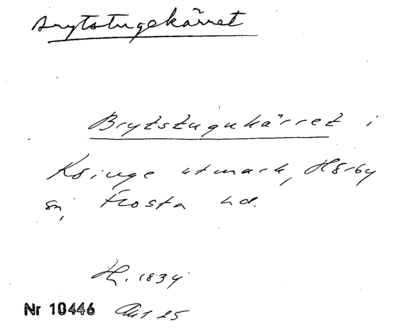 Brytstugekärret
Brytstugukärret i
Ksinge utmark, Hörby
sn, Frosta hd.
H. 1834
Nr 10446 Akt 25